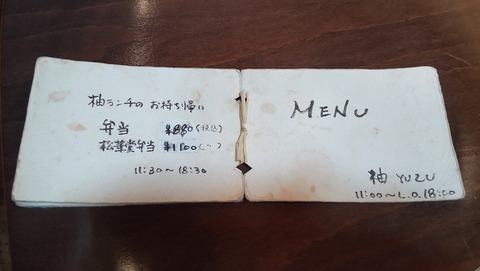 柚ランチの お持ち帰り
弁当 ¥880(税込)
松華堂弁当 ¥1100(〃)
11:30~18:30
MENU
柚 YUZU
11:00~L.O.18:00